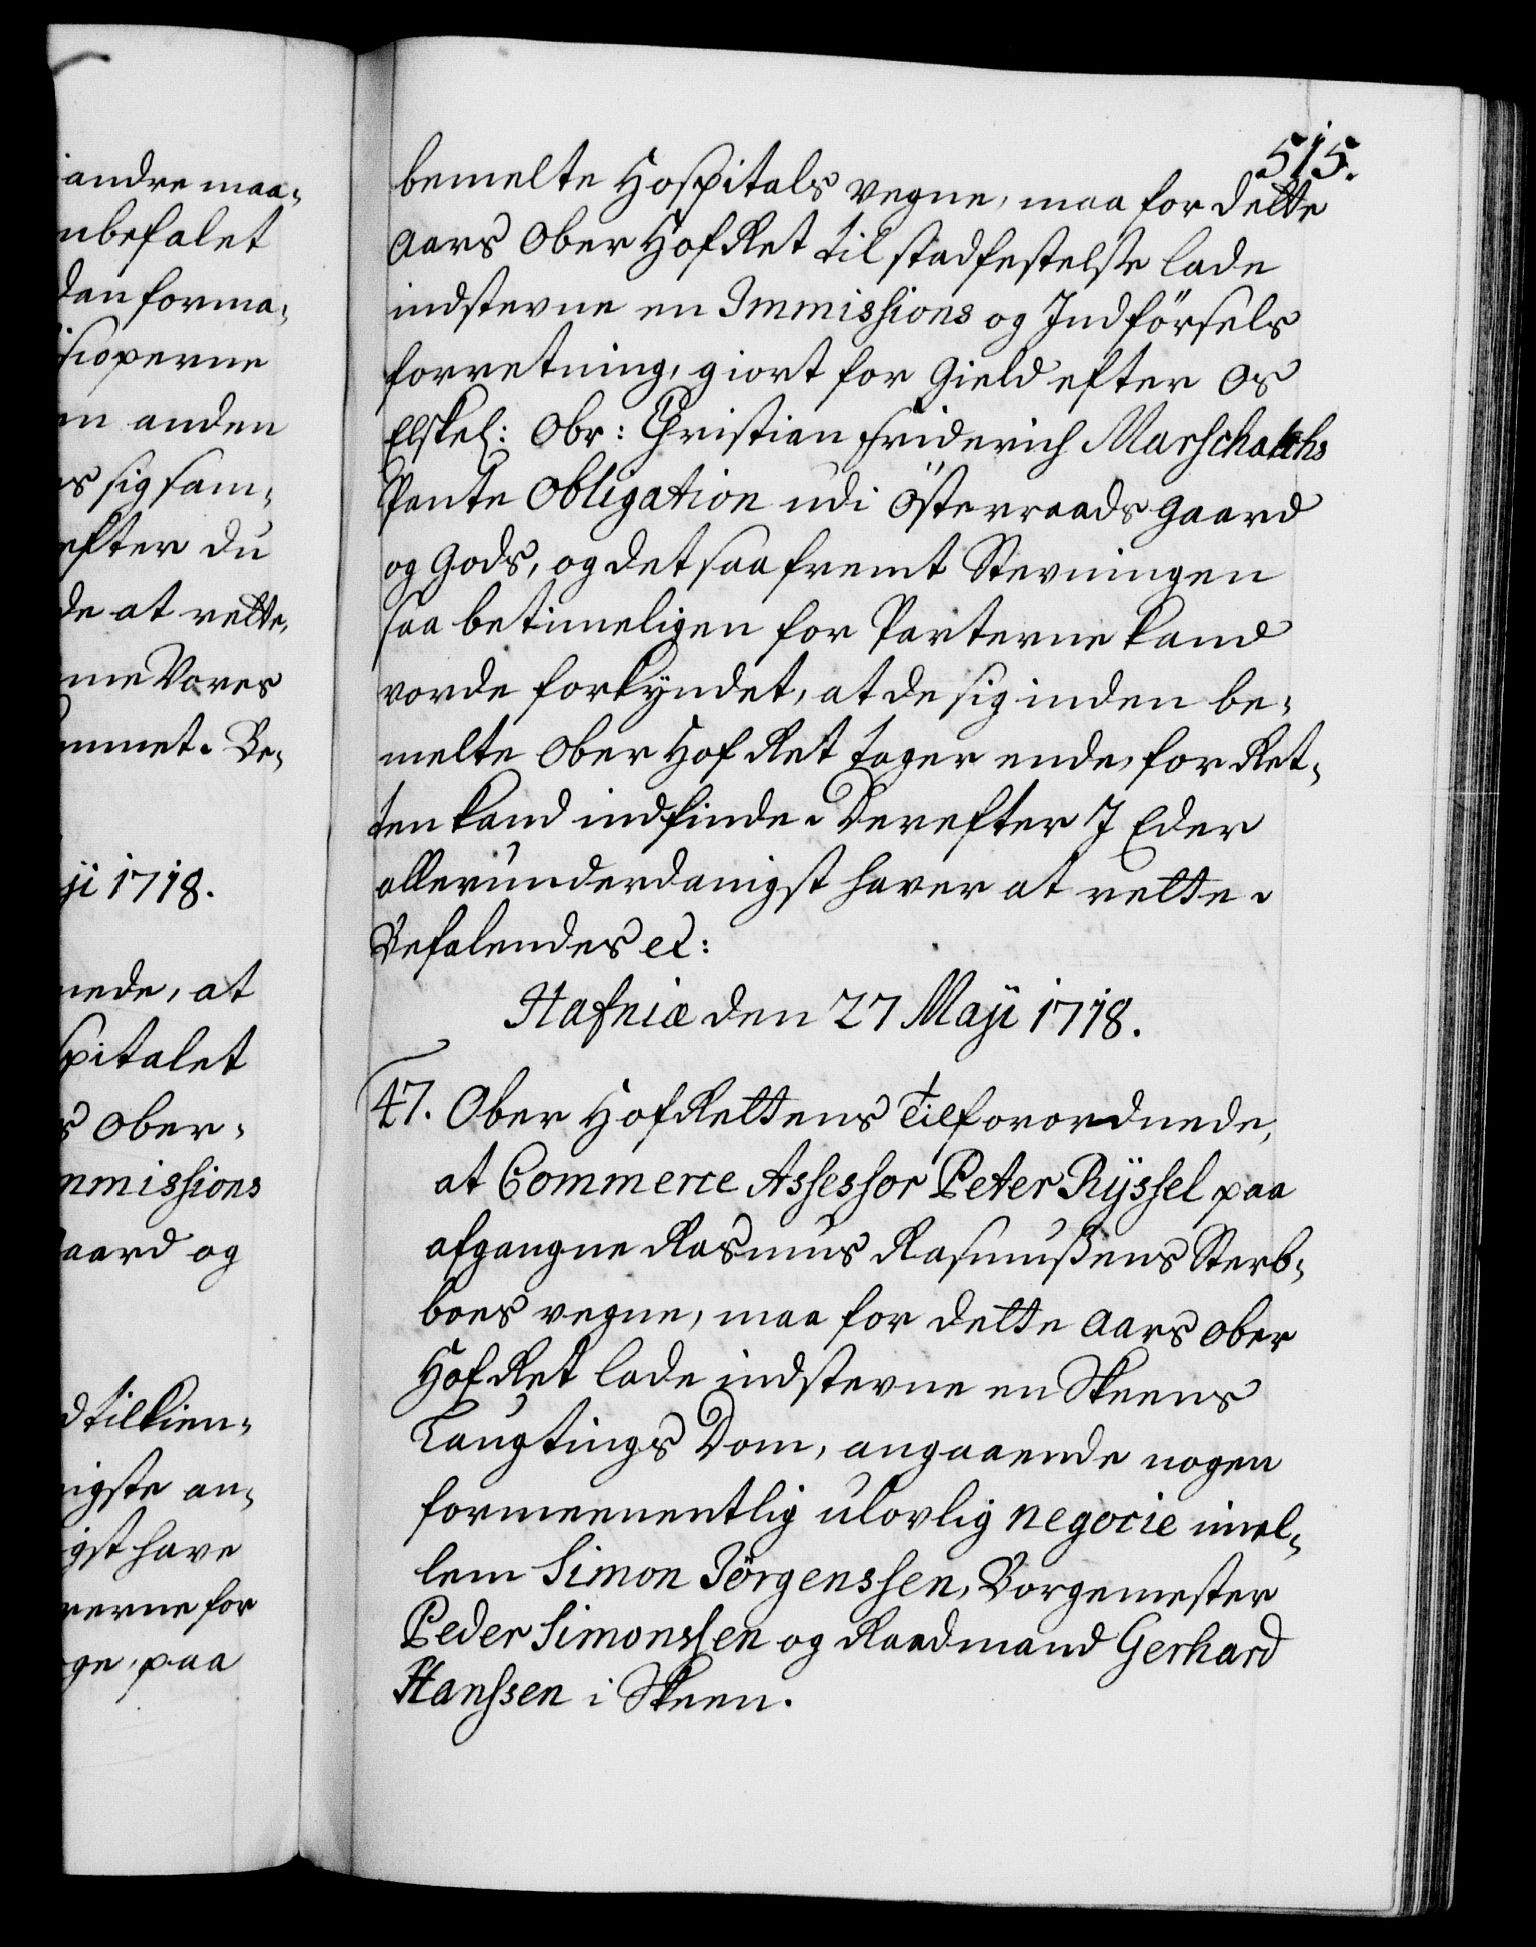 andre maa-
nbefalet
dan forma-
sioperne
en anden
es sig sam-
efter du
de at rette,
me Vores
mmet. Be-
ji 1718.
nede, at
spitalet
s Ober-
mmissions
aard og
d tilkien-
nigste an-
igst have
rerne for
ge, paa
515.
bemelte Hospitals vegne, maa for dette
Aars Ober Hof Ret til stadfestelse lade
indstevne en Immissions og Indförsels
forretning, giort for Gield efter Os
Elskel: Obr: Christian Friderich Marschalchs
Pante Obligation udi Österraads Gaard
og Gods, og det saafremt Stevningen
saa betimeligen for Parterne kand
vorde forkyndet, at de sig inden be-
melte Ober Hof Ret tager ende, for Ret-
ten kand indfinde. Derefter I Eder
allerunderdanigst haver at rette.
Befalendes et:
Hafniæ den 27 Maji 1718.
47. Ober Hof Rettens Tilforordnede,
at Commerce Assessor Peter Rÿssel paa
afgangne Rasmus Rasmußens Sterb-
boes vegne, maa for dette Aars Ober
Hof Ret lade indstevne en Skeens
Laugtings Dom, angaaende nogen
formeenentlig ulovlig negocie imel-
lem Simon Jörgenssen, Borgemester
Peder Simonssen og Raadmand Gerhard
Hanssen i Skeen.